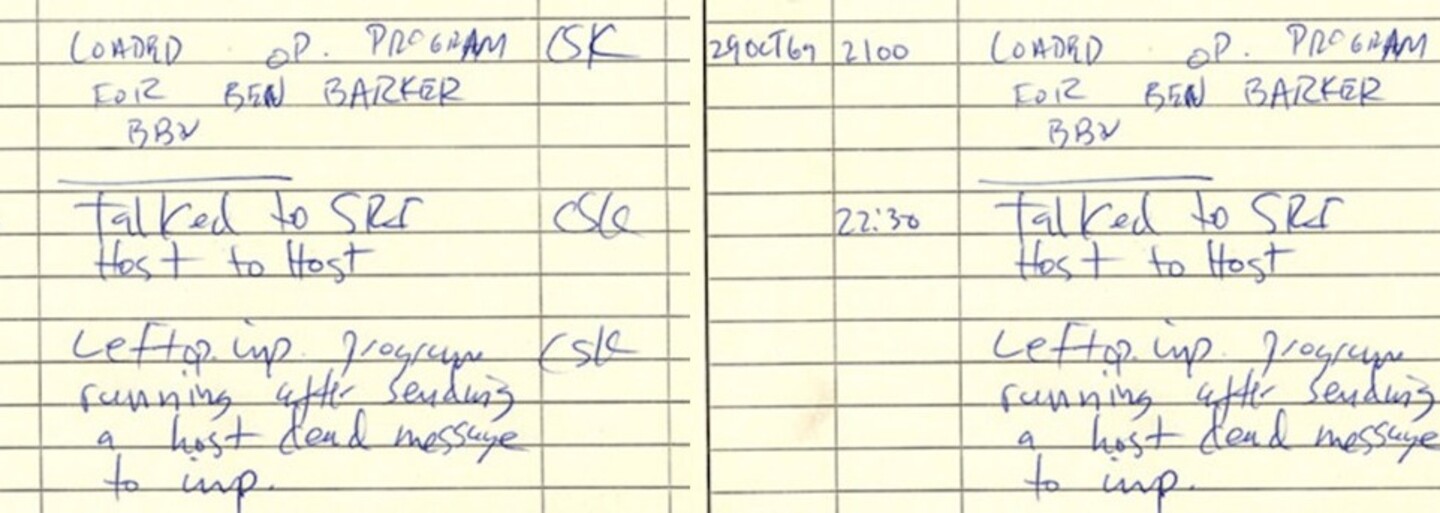 LOADED OP. PROGRAM CSK
FOR BEN BARKER
BBN
Talked to SRI CSK
Host to Host
Left op. imp. program CSK
running after sending
a host dead message
to imp.
29OCT69 2100 LOADED OP. PROGRAM
FOR BEN BARKER
BBN
22:30 Talked to SRI
Host to Host
Left op. imp. program
running after sending
a host dead message
to imp.